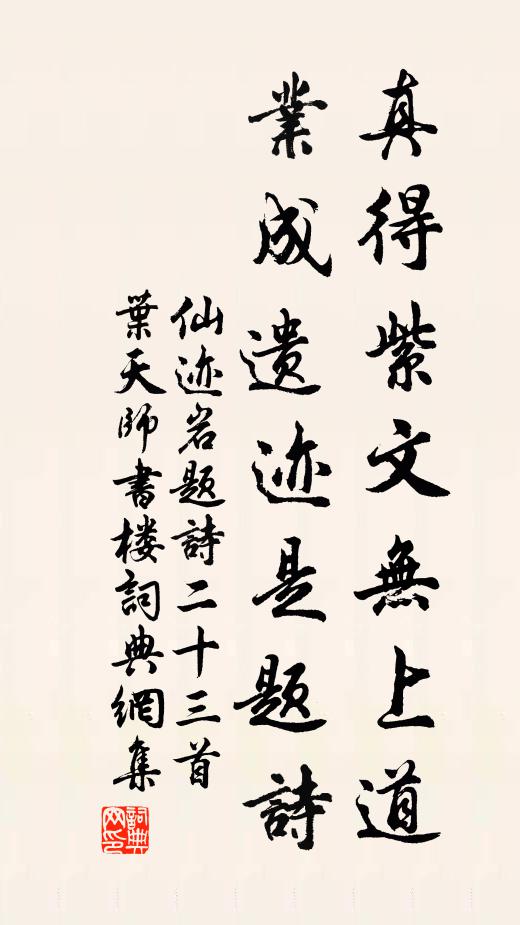 真得紫文無上道
業成遗迹是题詩
仙迹岩题詩二十三首
葉天师書楼詞典網集
詞典网印